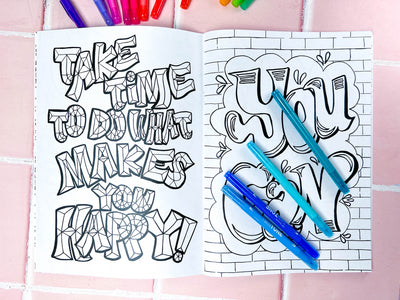 TAKE
TIME
TO DO WHAT
MAKES
YOU
HAPPY!
You
CAN